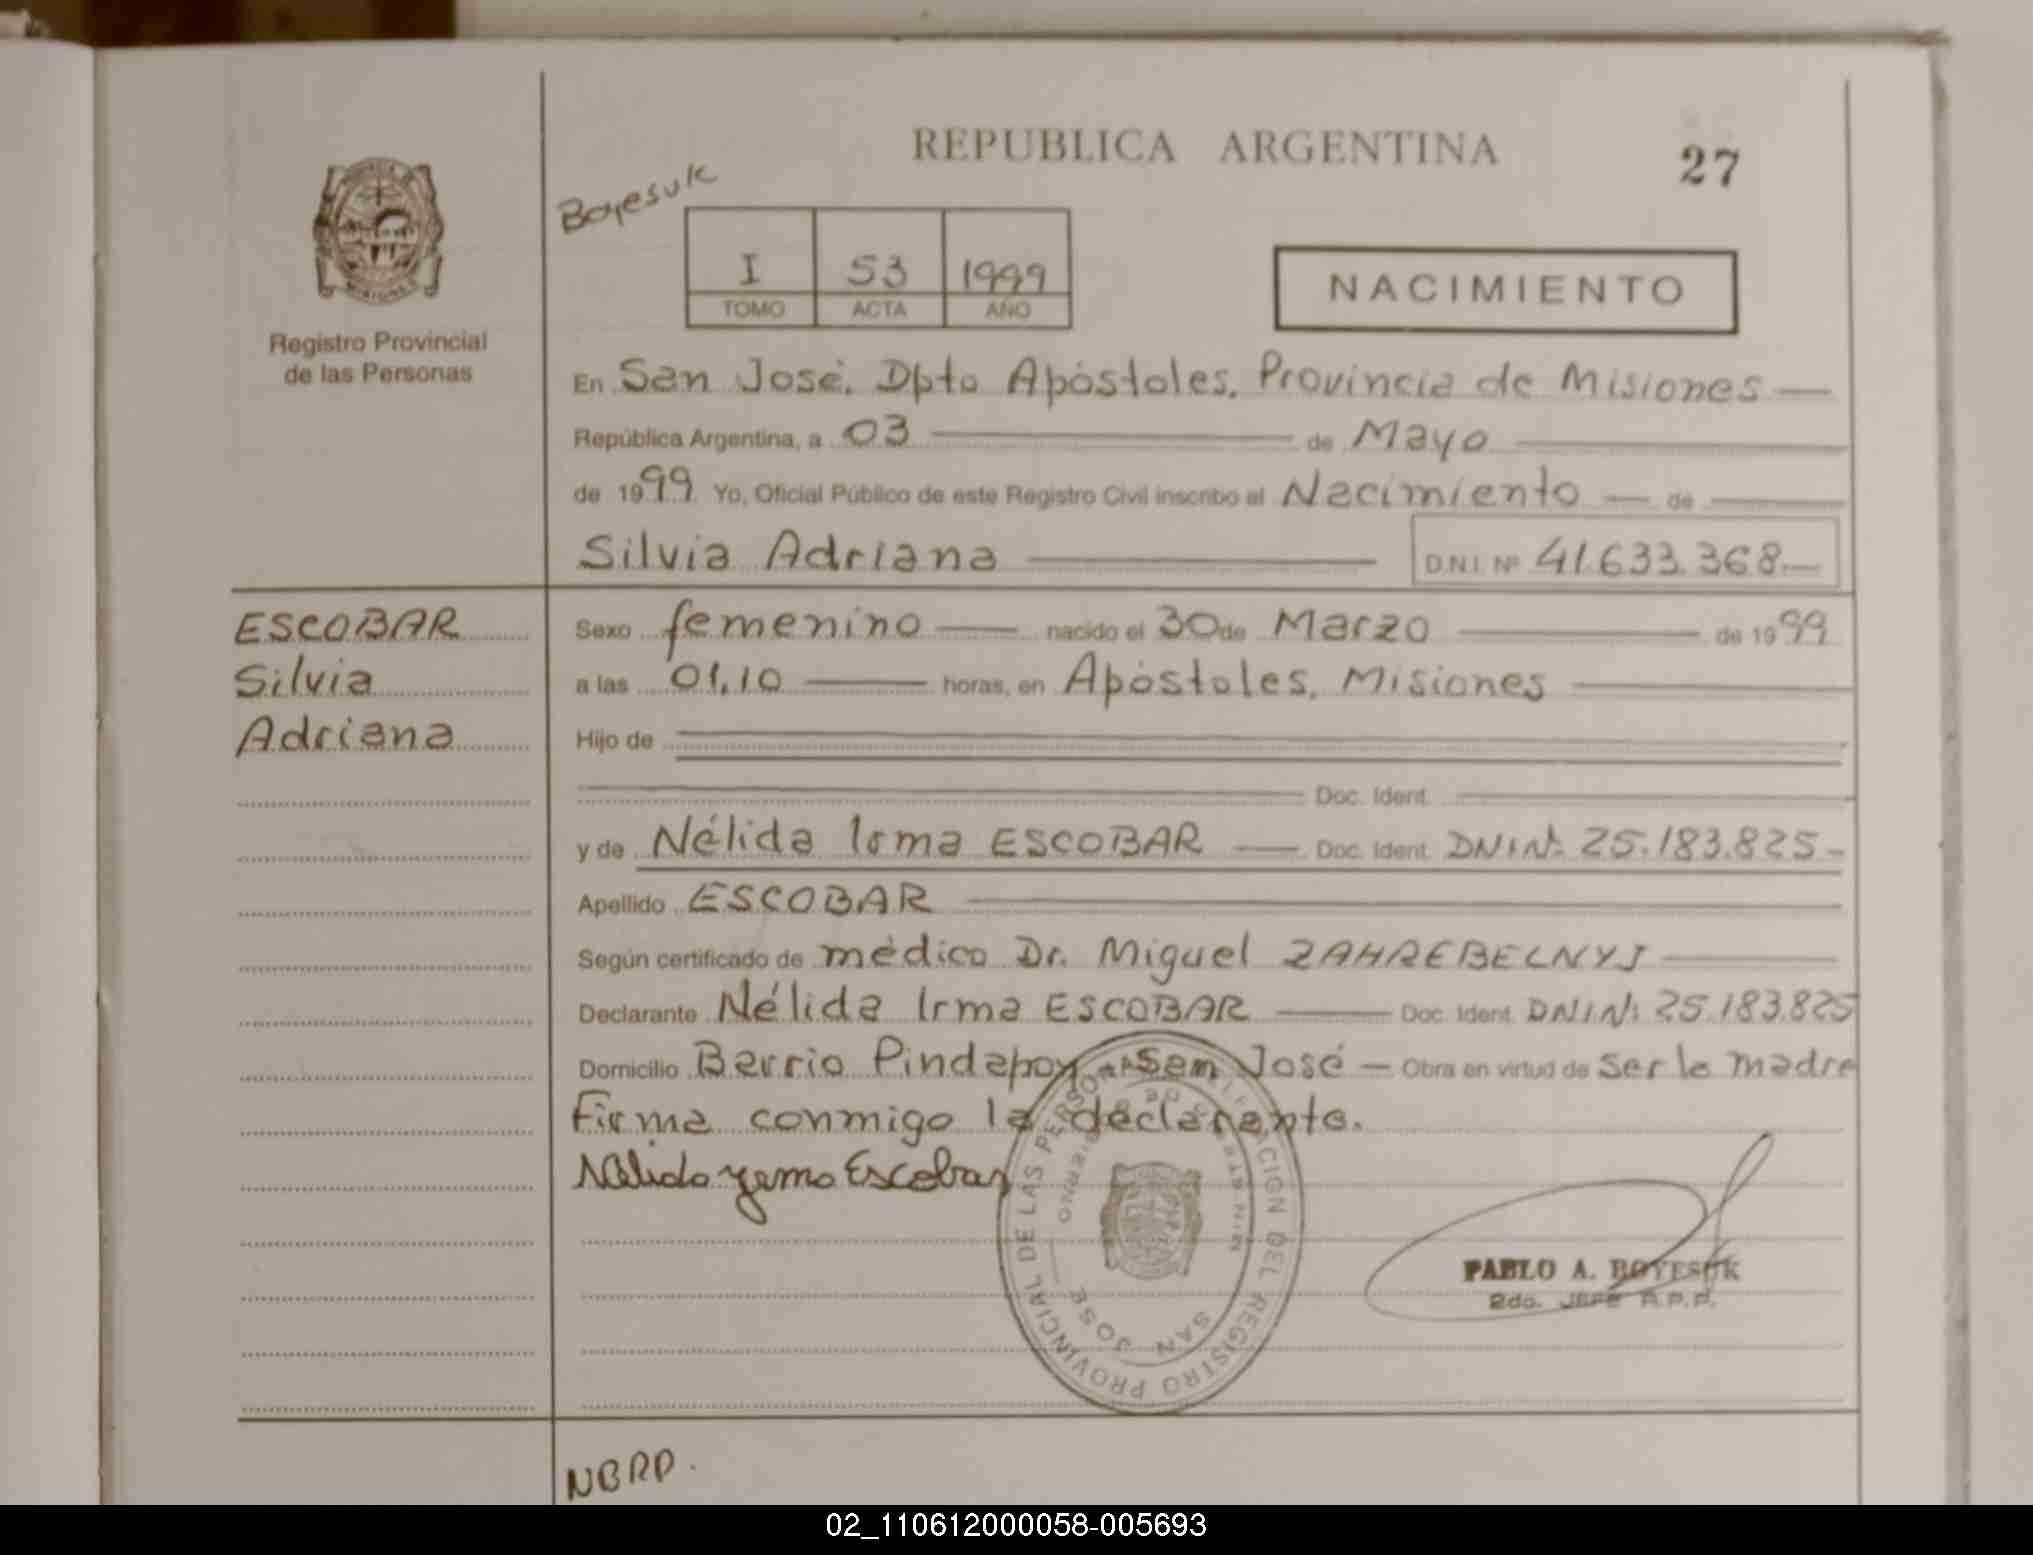 REPUBLICA ARGENTINA
27
Boyesuk
I 53 1999
TOMO ACTA AÑO
NACIMIENTO
MISIONES
Registro Provincial
de las Personas
En San José, Dpto Apóstoles, Provincia de Misiones
República Argentina, a 03 de Mayo
de 1999 Yo, Oficial Público de este Registro Civil inscribo el Nacimiento de
Silvia Adriana D.N.I. Nº 41.633.368.
ESCOBAR
Silvia
Adriana
Sexo femenino nacido el 30 de Marzo de 1999
a las 01,10 horas, en Apóstoles, Misiones
Hijo de
Doc. Ident.
y de Nélida Irma ESCOBAR Doc. Ident. DNI Nº 25.183.825
Apellido ESCOBAR
Según certificado de médico Dr. Miguel ZAHREBELNYJ
Declarante Nélida Irma ESCOBAR Doc. Ident. DNI Nº 25.183.825
Domicilio Barrio Pindapoy San José Obra en virtud de ser la madre
Firma conmigo la declarante.
Nelida Yrma Escobar
REGISTRO PROVINCIAL DE LAS PERSONAS
SAN JOSE
PABLO A. BOYESUK
2do. JEFE R.P.P.
NBRP.
02_110612000058-005693